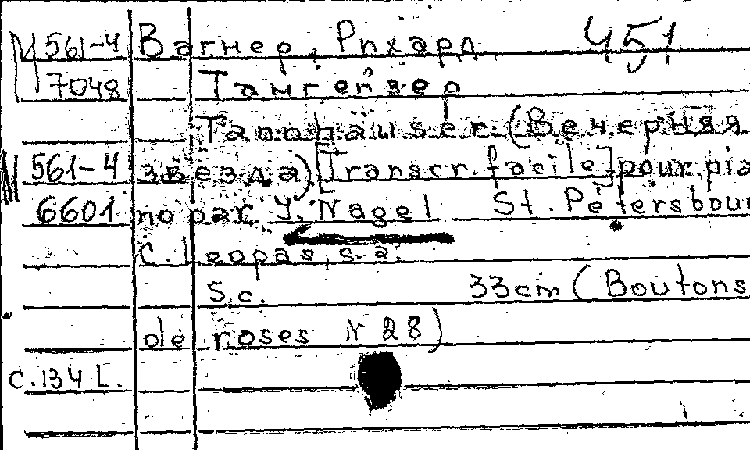 М 561-4 Вагнер, Рихард 451
7048 Тангейзер
Tannhäuser. (Вечерняя
М 561-4 звезда) [Transcr. facile] pour pia
6601 no par J. Nagel St. Petersbour
C. Leopas, s.a.
S.c. 33cm (Boutons
de roses N 28)
C.134 L.